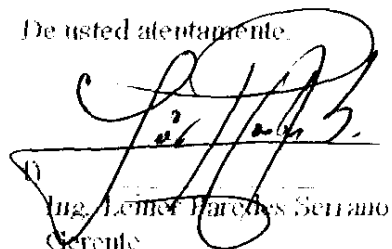 De usted atentamente.
f)
Ing. Leiner Paredes Serrano
Gerente